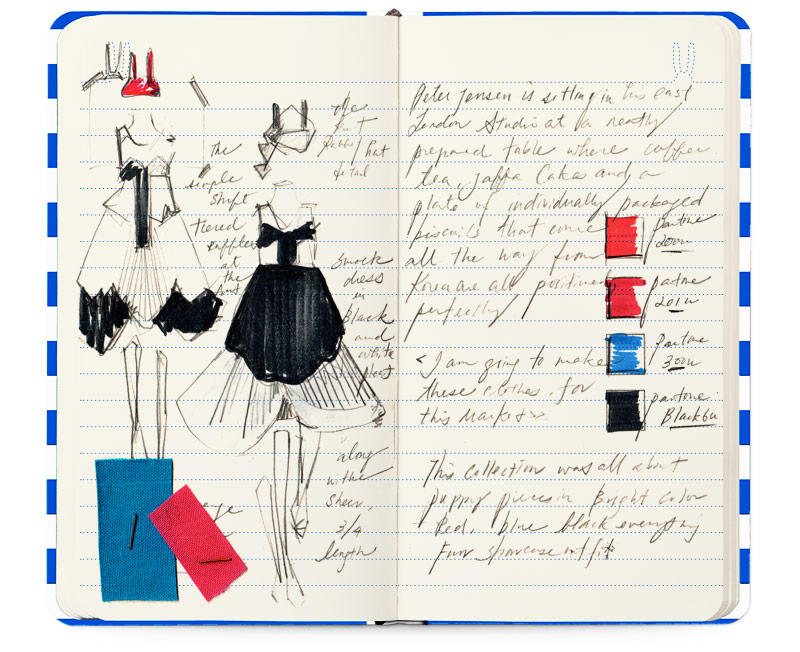 the
simple
shift
tiered
ruffles
at
the
hat
detail
Smock
dress
in
black
and
white
along
with
sheer,
3/4
length
Peter Jensen is sitting in his east
London Studio at a neatly
prepared table where coffee
tea, Jaffa Cake and a
plate of individually packaged
biscuits that come
all the way from
Korea are all positioned
perfectly
<I am going to make
these clothes for
this Market>
This Collection was all about
puppy pieces in Bright Color
Red, blue black everything
Fun showcase outfits
pantone
200u
pantone
201u
pantone
300u
pantone
Black6u